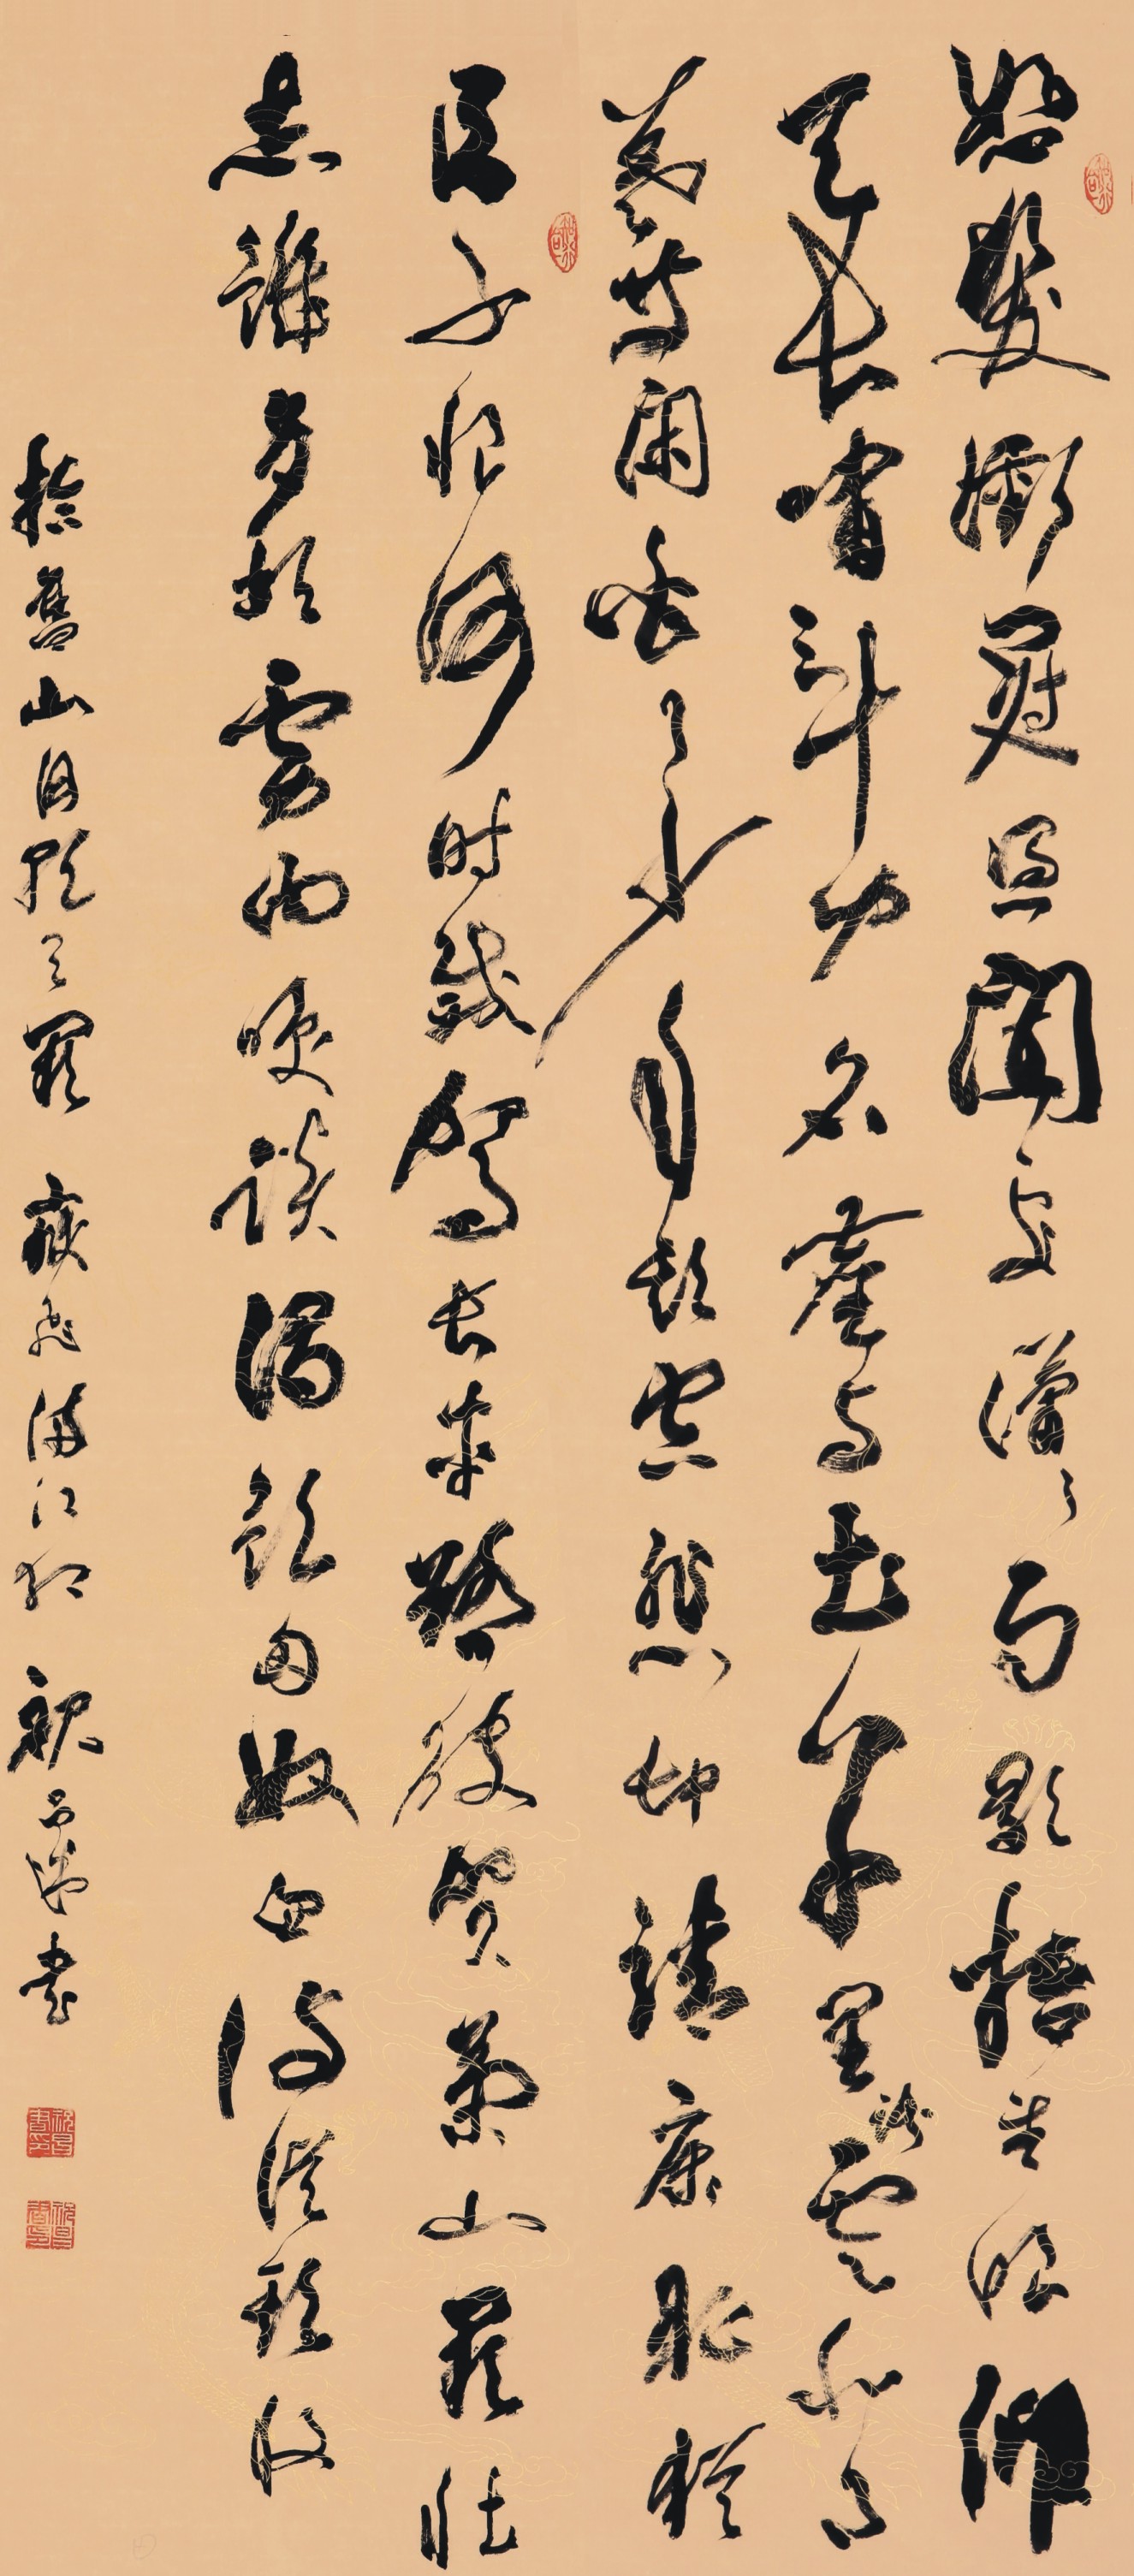 怒髮衝冠凭闌處瀟々雨歇抬望眼仰
天長嘯三十功名塵與土八千里路雲和月
莫等閑白了少年頭空悲切靖康恥猶
臣子恨何時滅駕長車踏破賀蘭山缺壯
志饑餐胡虜肉笑談渴飲匈奴血待從頭收
拾舊山河朝天闕 岳飛滿江紅 祝書